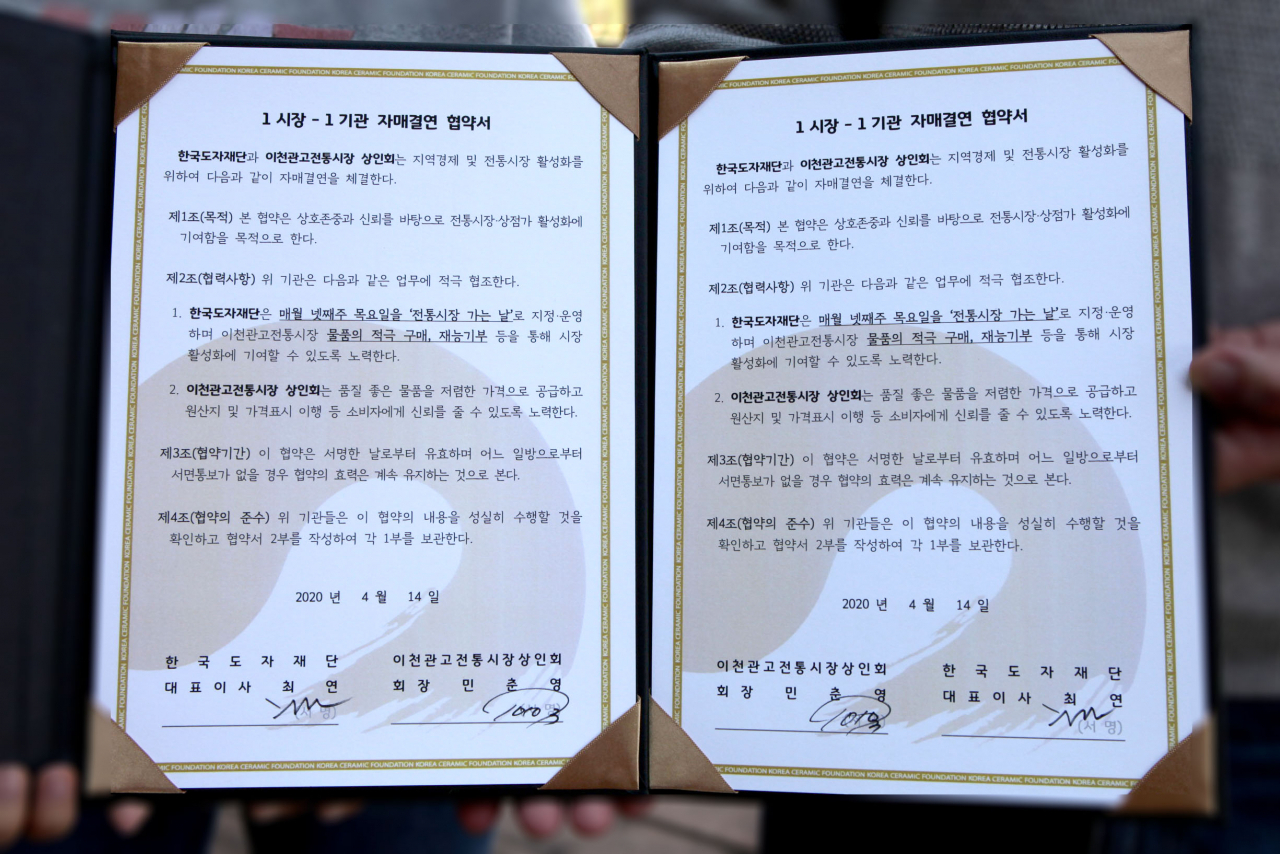 1 시장 – 1 기관 자매결연 협약서
한국도자재단과 이천관고전통시장 상인회는 지역경제 및 전통시장 활성화를
위하여 다음과 같이 자매결연을 체결한다.
제1조(목적) 본 협약은 상호존중과 신뢰를 바탕으로 전통시장·상점가 활성화에
기여함을 목적으로 한다.
제2조(협력사항) 위 기관은 다음과 같은 업무에 적극 협조한다.
1. 한국도자재단은 매월 넷째주 목요일을 ‘전통시장 가는 날’로 지정·운영
하며 이천관고전통시장 물품의 적극 구매, 재능기부 등을 통해 시장
활성화에 기여할 수 있도록 노력한다.
2. 이천관고전통시장 상인회는 품질 좋은 물품을 저렴한 가격으로 공급하고
원산지 및 가격표시 이행 등 소비자에게 신뢰를 줄 수 있도록 노력한다.
제3조(협약기간) 이 협약은 서명한 날로부터 유효하며 어느 일방으로부터
서면통보가 없을 경우 협약의 효력은 계속 유지하는 것으로 본다.
제4조(협약의 준수) 위 기관들은 이 협약의 내용을 성실히 수행할 것을
확인하고 협약서 2부를 작성하여 각 1부를 보관한다.
2020 년 4 월 14 일
한 국 도 자 재 단
대 표 이 사 최 연
(서 명)
이천관고전통시장상인회
회 장 민 춘 영
KOREA CERAMIC FOUNDATION KOREA CERAMIC FOUNDATION KOREA CERAMIC FOUNDATION
1 시장 – 1 기관 자매결연 협약서
한국도자재단과 이천관고전통시장 상인회는 지역경제 및 전통시장 활성화를
위하여 다음과 같이 자매결연을 체결한다.
제1조(목적) 본 협약은 상호존중과 신뢰를 바탕으로 전통시장·상점가 활성화에
기여함을 목적으로 한다.
제2조(협력사항) 위 기관은 다음과 같은 업무에 적극 협조한다.
1. 한국도자재단은 매월 넷째주 목요일을 ‘전통시장 가는 날’로 지정·운영
하며 이천관고전통시장 물품의 적극 구매, 재능기부 등을 통해 시장
활성화에 기여할 수 있도록 노력한다.
2. 이천관고전통시장 상인회는 품질 좋은 물품을 저렴한 가격으로 공급하고
원산지 및 가격표시 이행 등 소비자에게 신뢰를 줄 수 있도록 노력한다.
제3조(협약기간) 이 협약은 서명한 날로부터 유효하며 어느 일방으로부터
서면통보가 없을 경우 협약의 효력은 계속 유지하는 것으로 본다.
제4조(협약의 준수) 위 기관들은 이 협약의 내용을 성실히 수행할 것을
확인하고 협약서 2부를 작성하여 각 1부를 보관한다.
2020 년 4 월 14 일
이천관고전통시장상인회
회 장 민 춘 영
한 국 도 자 재 단
대 표 이 사 최 연
(서 명)
KOREA CERAMIC FOUNDATION KOREA CERAMIC FOUNDATION KOREA CERAMIC FOUNDATION